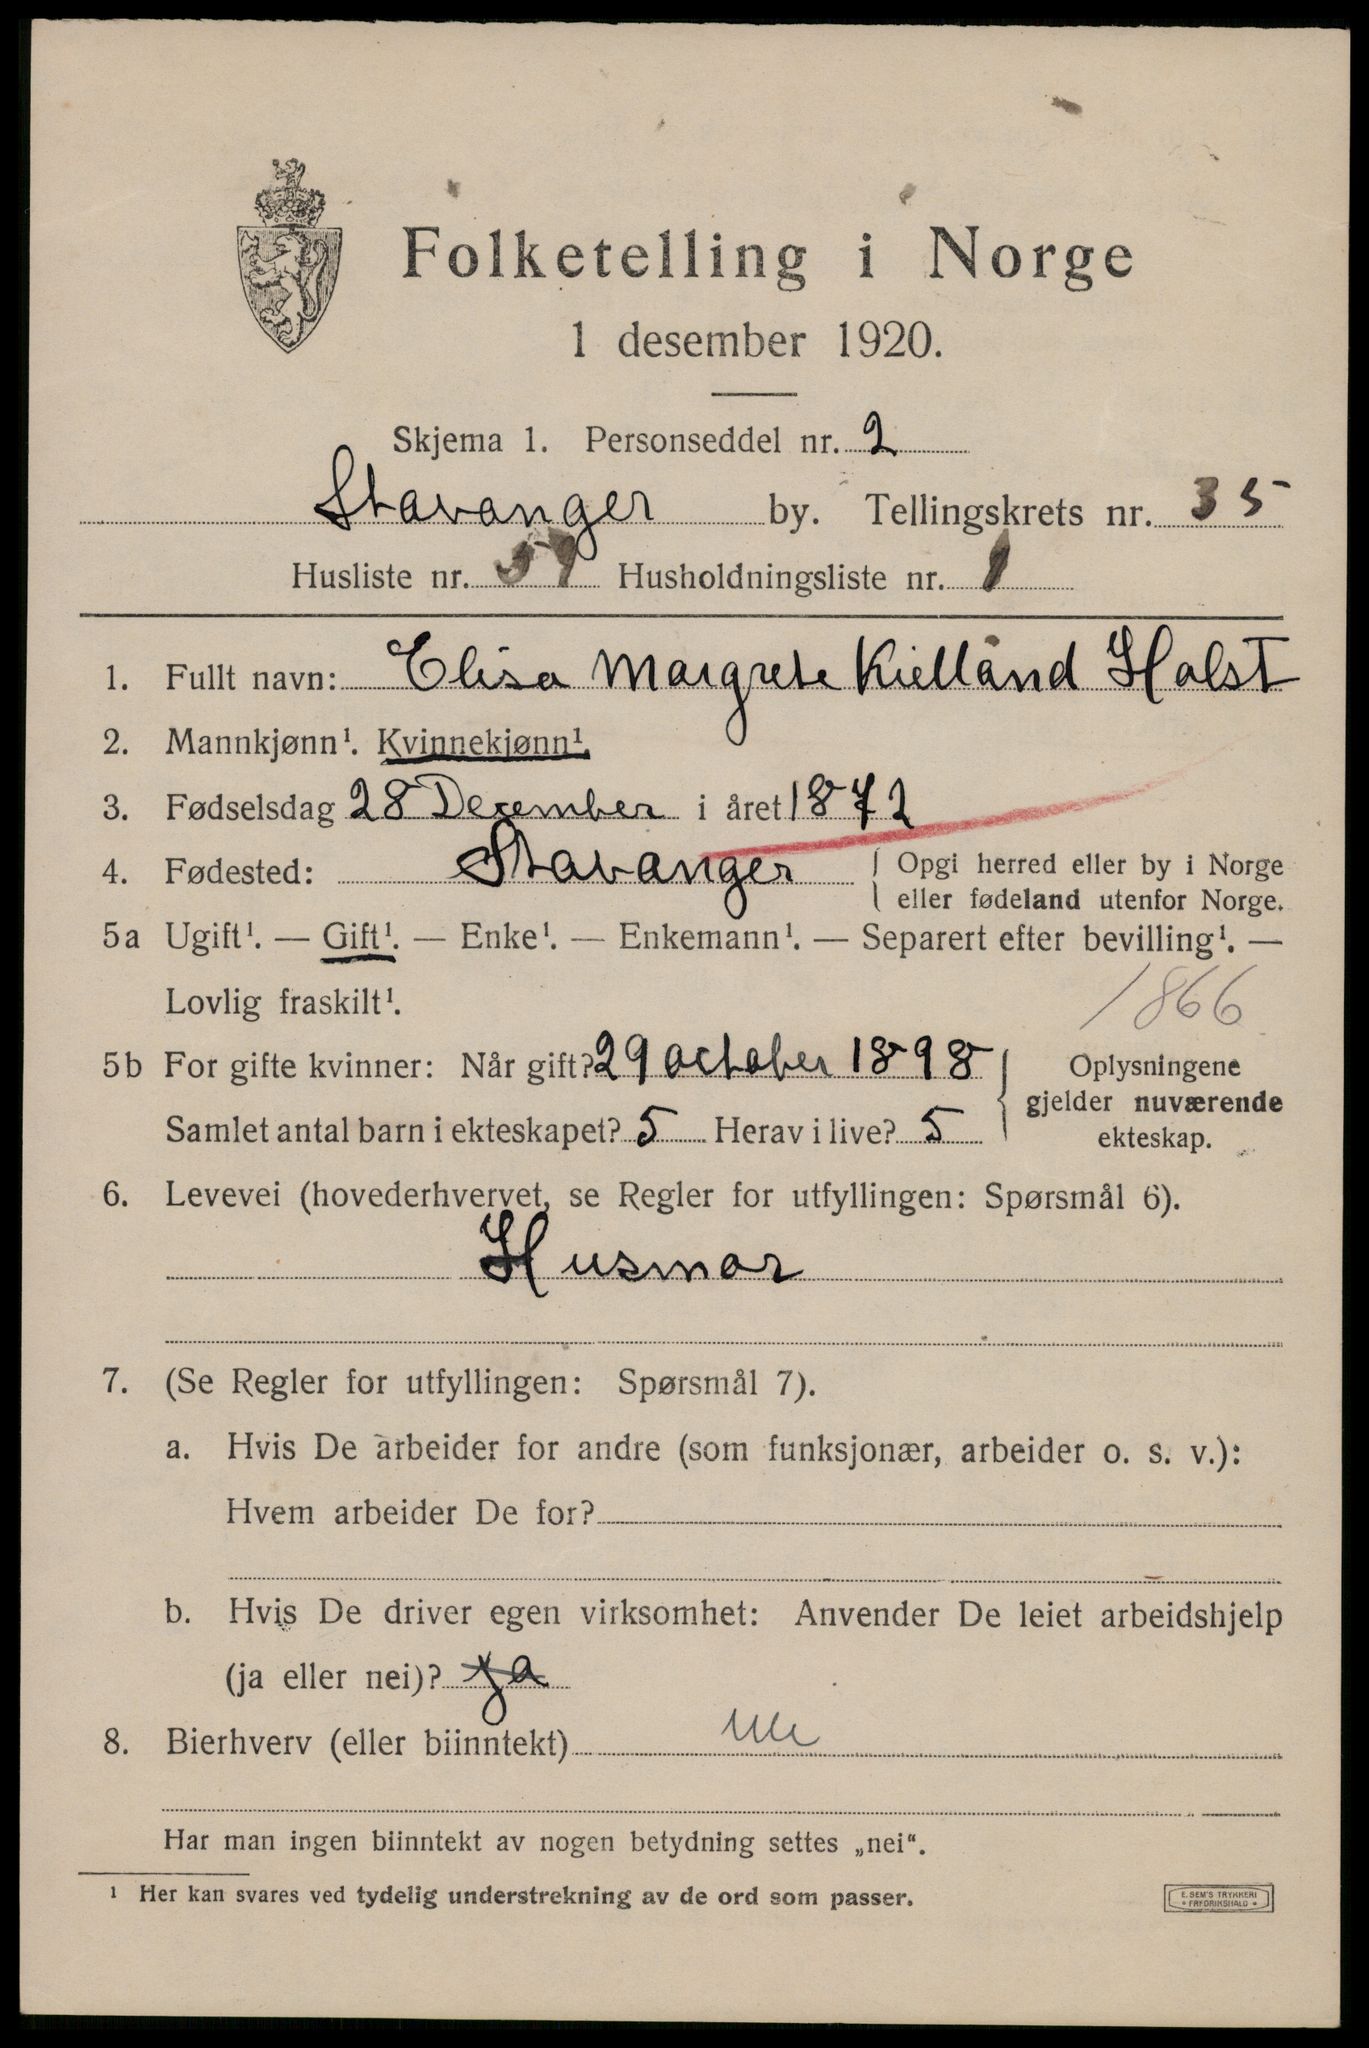 Folketelling i Norge
1 desember 1920.
Skjema 1. Personseddel nr. 2
Stavanger by. Tellingskrets nr. 35
Husliste nr. 59 Husholdningsliste nr. 1
1. Fullt navn: Elisa Margrete Kielland Holst
2. Mannkjønn¹. Kvinnekjønn¹.
3. Fødselsdag 28 December i året 1872
4. Fødested: Stavanger { Opgi herred eller by i Norge
eller fødeland utenfor Norge.
5a Ugift¹. — Gift¹. — Enke¹. — Enkemann¹. — Separert efter bevilling¹. —
Lovlig fraskilt¹.
1866
5b For gifte kvinner: Når gift? 29 october 1898
Samlet antal barn i ekteskapet? 5 Herav i live? 5
Oplysningene
gjelder nuværende
ekteskap.
6. Levevei (hovederhvervet, se Regler for utfyllingen: Spørsmål 6).
Husmor
7. (Se Regler for utfyllingen: Spørsmål 7).
a. Hvis De arbeider for andre (som funksjonær, arbeider o. s. v.):
Hvem arbeider De for?
b. Hvis De driver egen virksomhet: Anvender De leiet arbeidshjelp
(ja eller nei)? ja
8. Bierhverv (eller biinntekt) nei
Har man ingen biinntekt av nogen betydning settes „nei“.
¹ Her kan svares ved tydelig understrekning av de ord som passer.
E. SEM'S TRYKKERI
• FREDRIKSHALD •